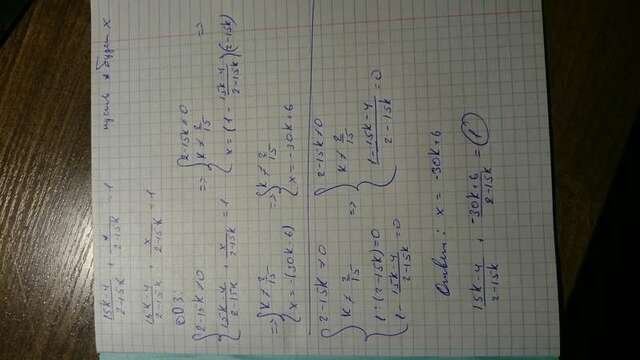 15k-4/2-15k + */2-15k = 1 пусть * будет x
15k-4/2-15k + x/2-15k = 1
ОДЗ:
{ 2-15k≠0
15k-4/2-15k + x/2-15k = 1
=> { 2-15k≠0
k≠2/15
x = (1 - 15k-4/2-15k)(2-15k) =>
=> { k≠2/15
x = -(30k-6)
=> { k≠2/15
x = -30k+6
{ 2-15k≠0
k≠2/15
1·(2-15k)=0
1 - 15k-4/2-15k = 0
=> { 2-15k≠0
k≠2/15
1-15k-4/2-15k = 0
Ответ: x = -30k+6
15k-4/2-15k + -30k+6/2-15k = 1